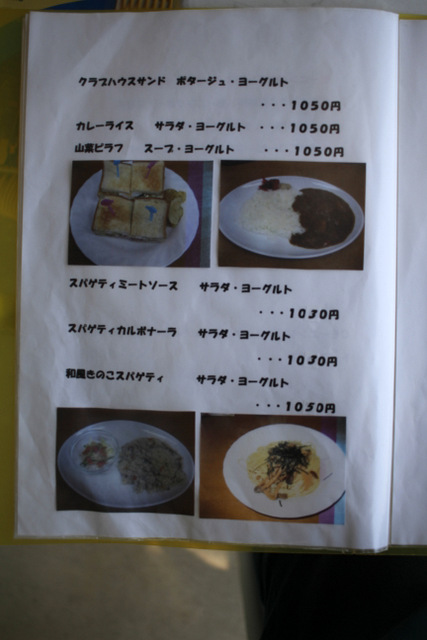 クラブハウスサンド ポタージュ・ヨーグルト
・・・1050円
カレーライス サラダ・ヨーグルト ・・・1050円
山菜ピラフ スープ・ヨーグルト ・・・1050円
スパゲティミートソース サラダ・ヨーグルト
・・・1030円
スパゲティカルボナーラ サラダ・ヨーグルト
・・・1030円
和風きのこスパゲティ サラダ・ヨーグルト
・・・1050円